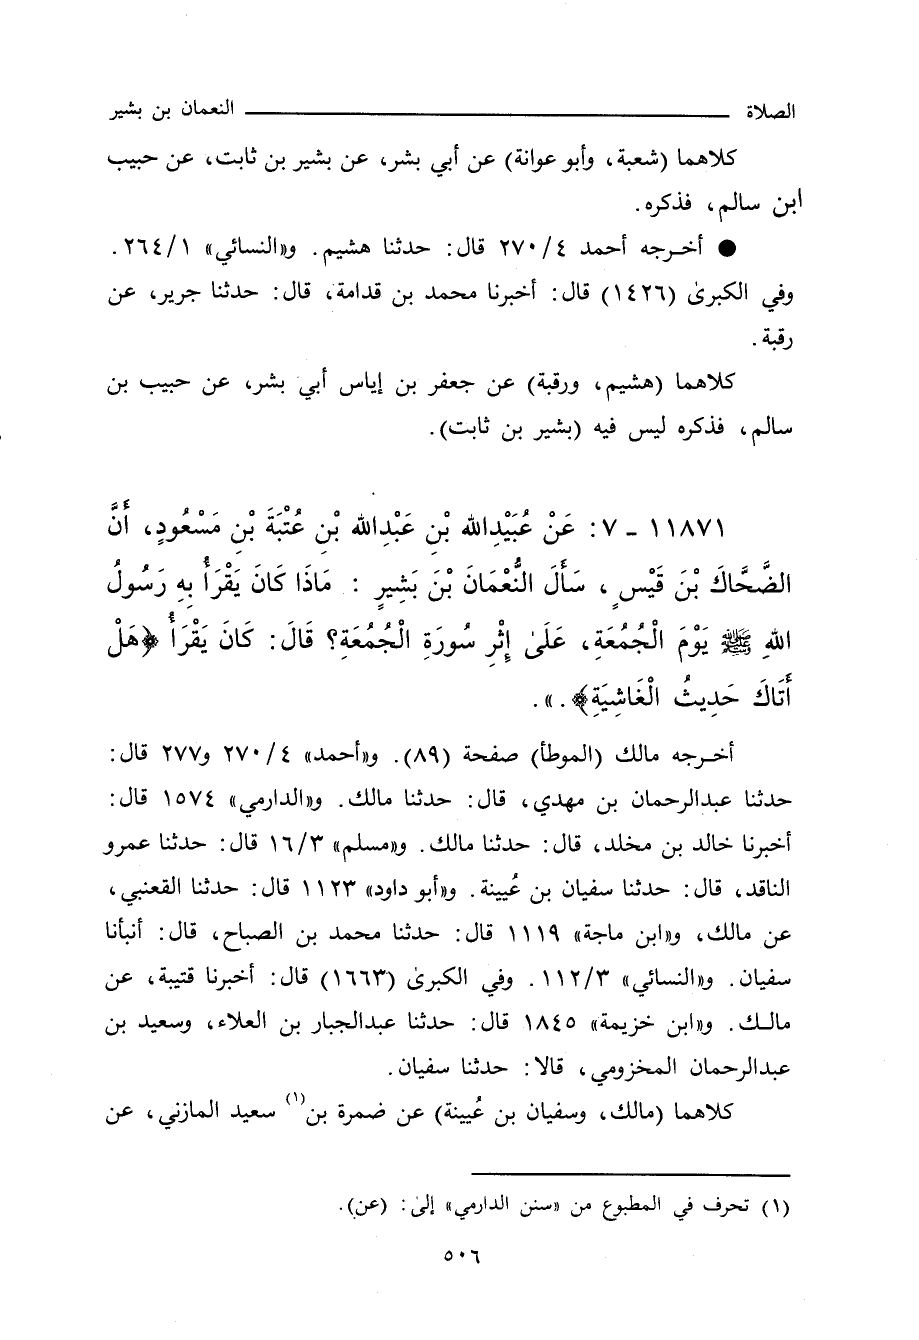 الصلاة ــــــــــــــــــــ النعمان بن بشير
كلاهما (شعبة، وأبو عوانة) عن أبي بشر، عن بشير بن ثابت، عن حبيب
ابن سالم، فذكره.
● أخـرجه أحمد ٢٧٠/٤ قال: حدثنا هشيم. و«النسائي» ٢٦٤/١.
وفي الكبرىٰ (١٤٢٦) قال: أخبرنا محمد بن قدامة، قال: حدثنا جرير، عن
رقبة.
كلاهما (هشيم، ورقبة) عن جعفر بن إياس أبي بشر، عن حبيب بن
سالم، فذكره ليس فيه (بشير بن ثابت).
١١٨٧١ - ٧: عَنْ عُبَيْدِالله بْنِ عَبْدِالله بْنِ عُتْبَةَ بْنِ مَسْعُودٍ، أَنَّ
الضَّحَّاكَ بْنَ قَيْسٍ، سَأَلَ النُّعْمَانَ بْنَ بَشِيرٍ : مَاذَا كَانَ يَقْرَأُ بِهِ رَسُولُ
اللهِ ﷺ يَوْمَ الْجُمُعَةِ، عَلَىٰ إِثْرِ سُورَةِ الْجُمُعَةِ؟ قَالَ: كَانَ يَقْرَأُ ﴿هَلْ
أَتَاكَ حَدِيثُ الْغَاشِيَةِ﴾.».
أخـرجه مالك (الموطأ) صفحة (٨٩). و«أحمد» ٢٧٠/٤ و٢٧٧ قال:
حدثنا عبدالرحمان بن مهدي، قال: حدثنا مالك. و«الدارمي» ١٥٧٤ قال:
أخبرنا خالد بن مخلد، قال: حدثنا مالك. و«مسلم» ١٦/٣ قال: حدثنا عمرو
الناقد، قال: حدثنا سفيان بن عُيينة. و«أبو داود» ١١٢٣ قال: حدثنا القعنبي،
عن مالك، و«ابن ماجة» ١١١٩ قال: حدثنا محمد بن الصباح، قال: أنبأنا
سفيان. و«النسائي» ١١٢/٣. وفي الكبرىٰ (١٦٦٣) قال: أخبرنا قتيبة، عن
مالـك. و«ابن خزيمة» ١٨٤٥ قال: حدثنا عبدالجبار بن العلاء، وسعيد بن
عبدالرحمان المخزومي، قالا: حدثنا سفيان.
كلاهما (مالك، وسفيان بن عُيينة) عن ضمرة بن(١) سعيد المازني، عن
(١) تحرف في المطبوع من «سنن الدارمي» إلىٰ: (عن).
٥٠٦